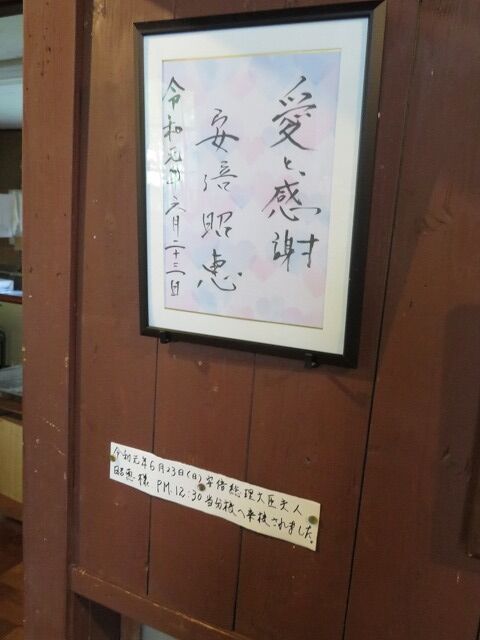 愛と感謝
安倍昭恵
令和元年六月二十三日
令和元年6月23日(日)安倍総理大臣夫人
昭恵様 PM.12:30 当分校へ来校されました。